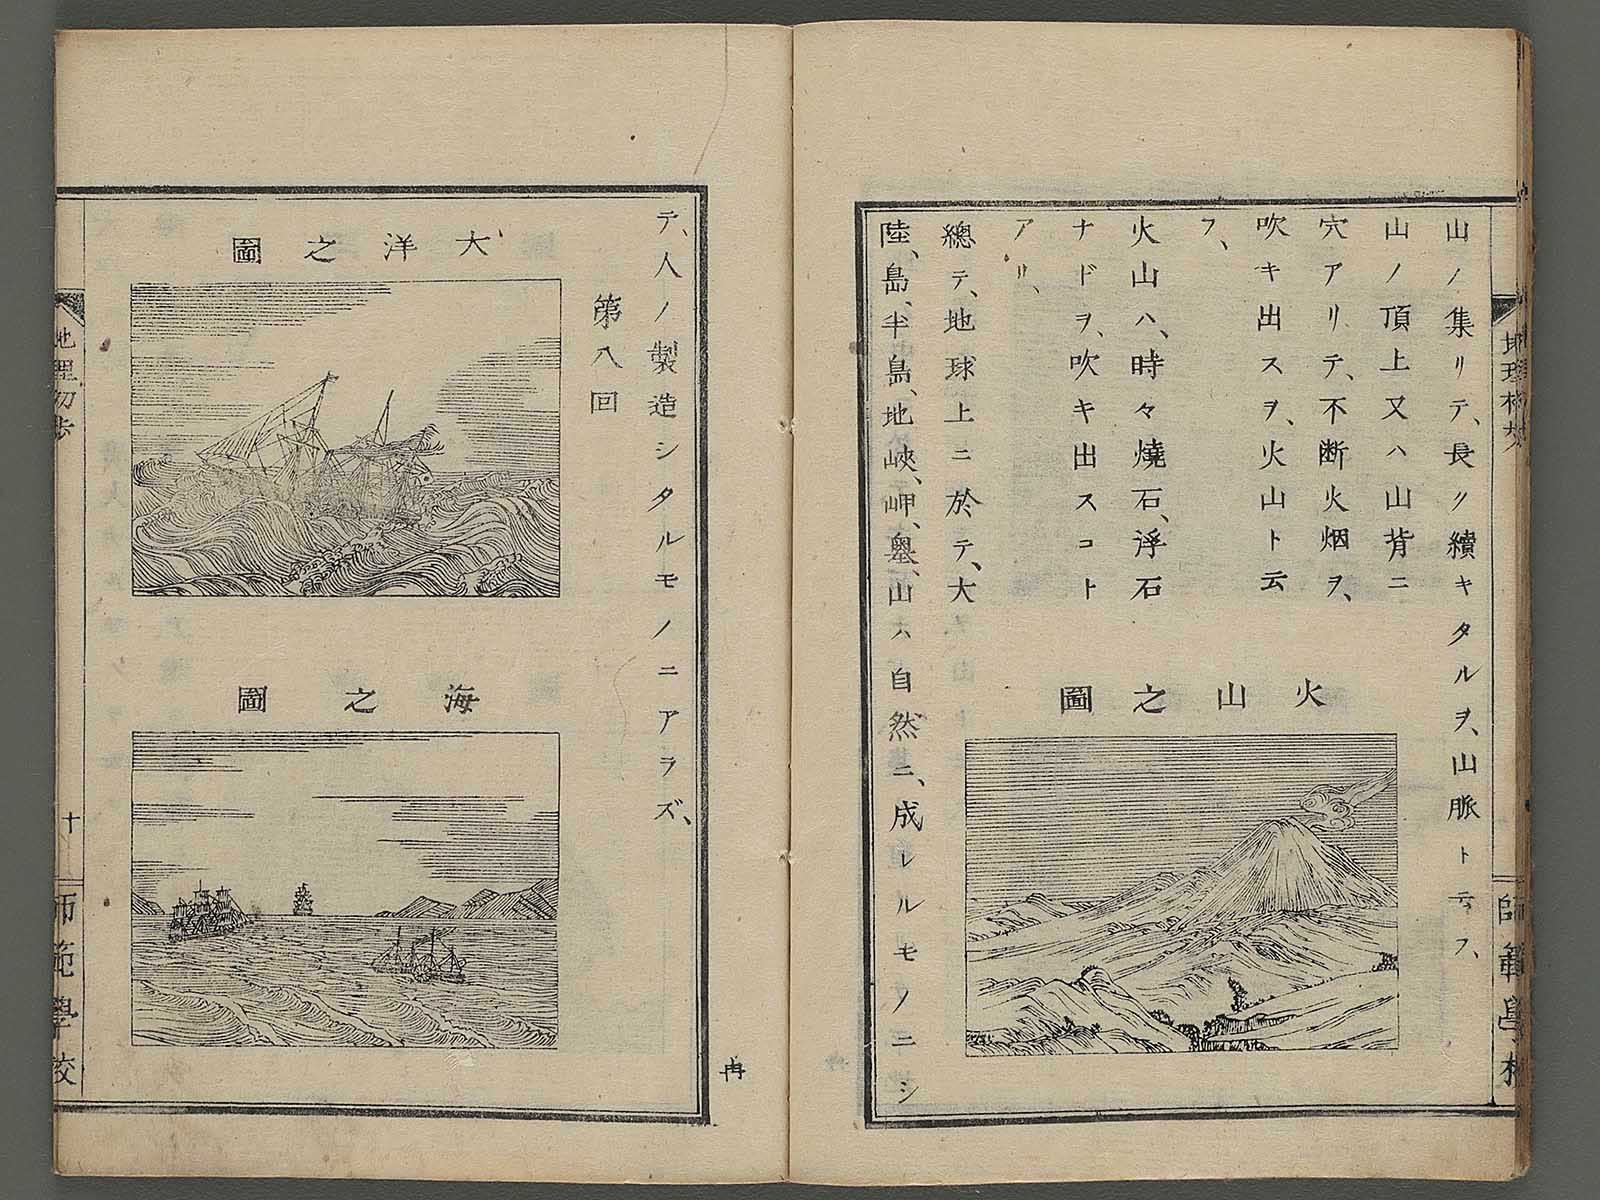 山ノ集リテ、長ク續キタルヲ、山脈ト云フ、
山ノ頂上又ハ山背ニ
穴アリテ、不断火烟ヲ、
吹キ出スヲ、火山ト云
フ、
火山ハ、時々燒石、浮石
ナドヲ、吹キ出スコト
アリ、
火山之圖
總テ、地球上ニ於テ、大
陸、島、半島、地峽、岬、墺、山ハ自然ニ、成レルモノニシ
師範學校
テ、人ノ製造シタルモノニアラズ、
第八回
大洋之圖
海之圖
地理初歩
十
師範學校